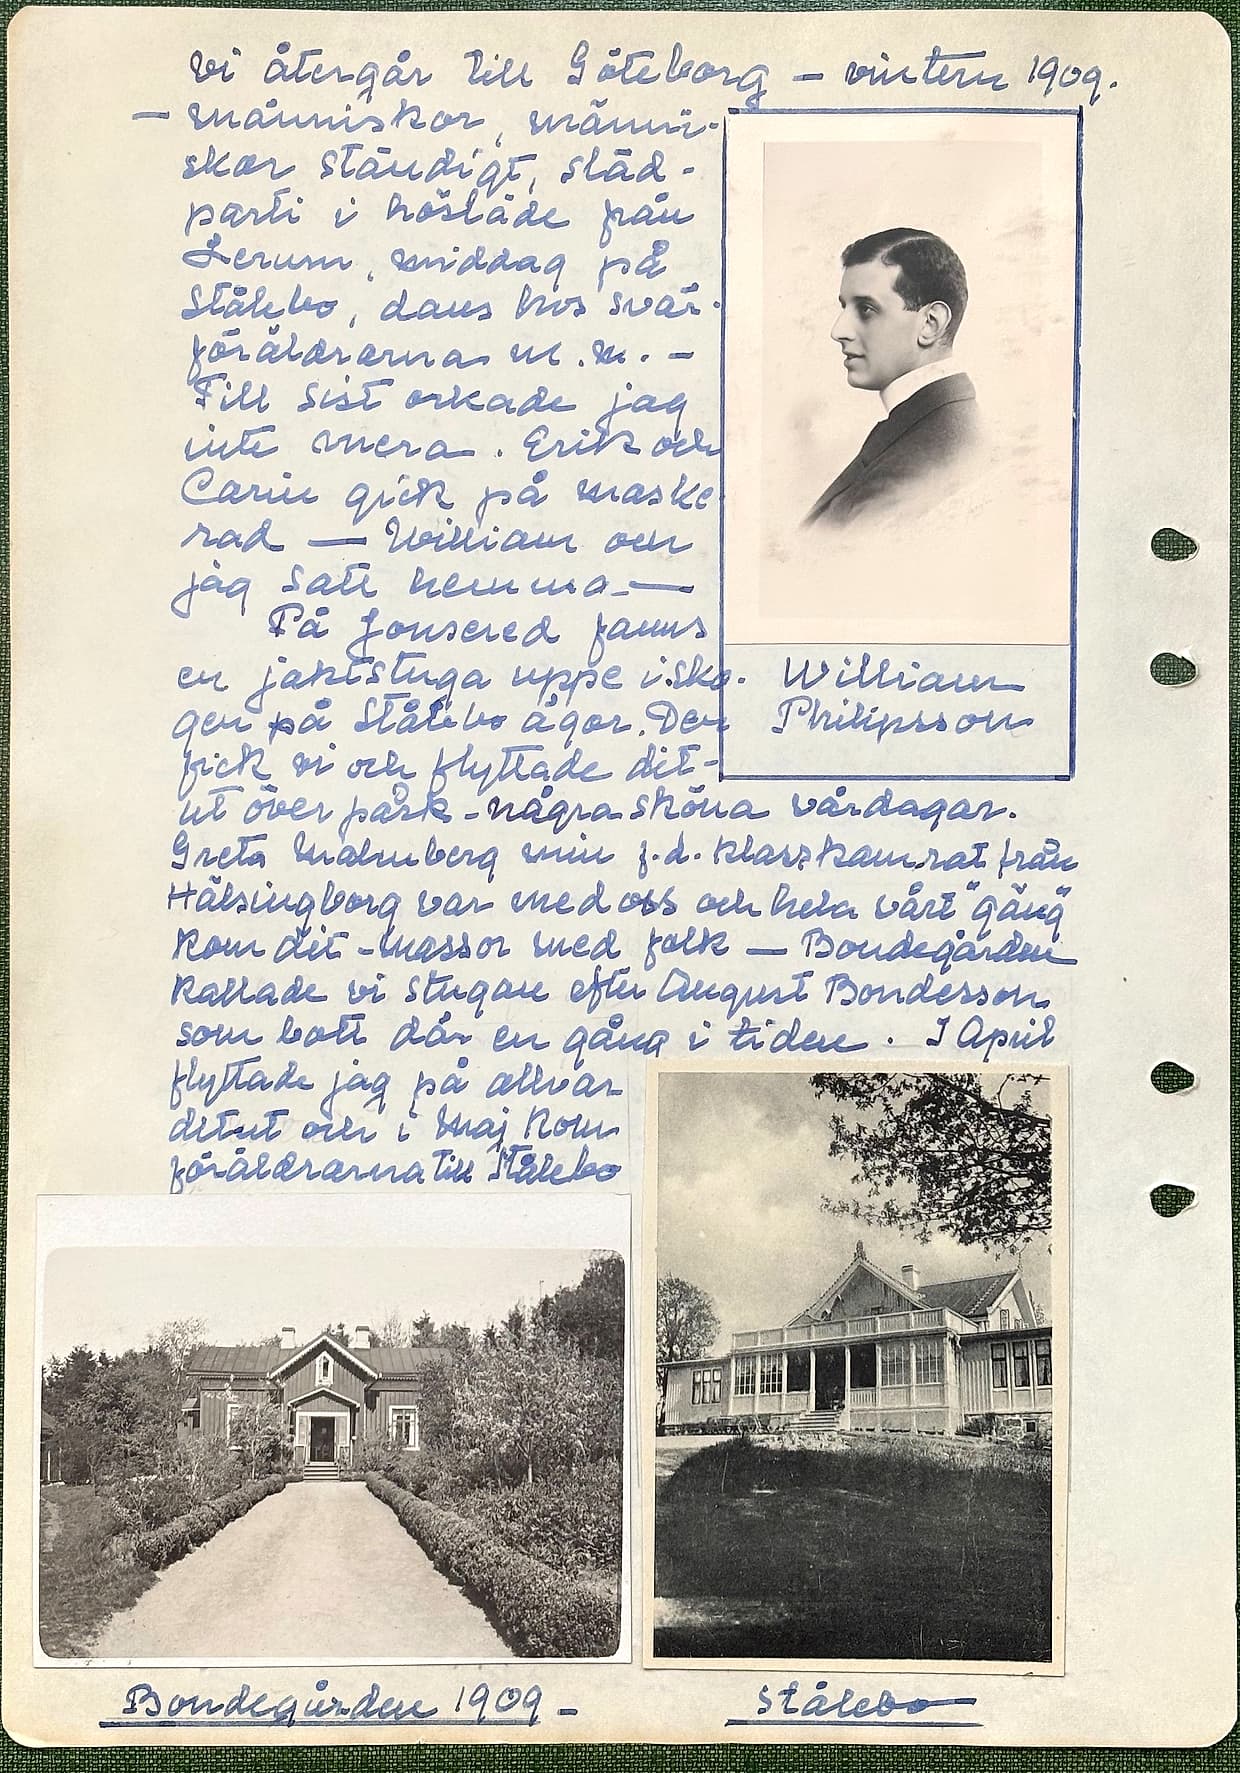 Vi återgår till Göteborg – vintern 1909.
– Människor, männi-
skor ständigt, släd-
parti i hösläde från
Lerum, middag på
Stålebo, dans hos svär-
föräldrarna m.m. –
Till sist orkade jag
inte mera. Erik och
Carin gick på maske-
rad — William och
jag satt hemma. —
På Jonsered fanns
en jaktstuga uppe i sko-
gen på Stålebo ägor. Den
fick vi och flyttade dit-
ut över påsk – några sköna vårdagar.
Greta Malmberg min f.d. klasskamrat från
Hälsingborg var med oss och hela vårt "gäng"
kom dit – massor med folk — Bondegården
kallade vi stugan efter August Bondesson
som bott där en gång i tiden. I April
flyttade jag på allvar
ditut och i Maj kom
föräldrarna till Stålebo
William
Philipsson
Bondegården 1909 –
Stålebo